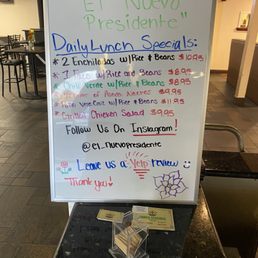 El Nuevo
Presidente"
Daily Lunch Specials:
* 2 Enchiladas w/Rice & Beans $10.95
* 2 Tacos w/Rice and Beans $8.95
* Chile Verde w/Rice & Beans $8.95
* of Asada Nachos $9.95
* w/Rice & Beans $11.95
* Grilled Chicken Salad $9.95
Follow Us On Instagram!
@el.nuevopresidente
Leave us a Yelp review
Thank you!